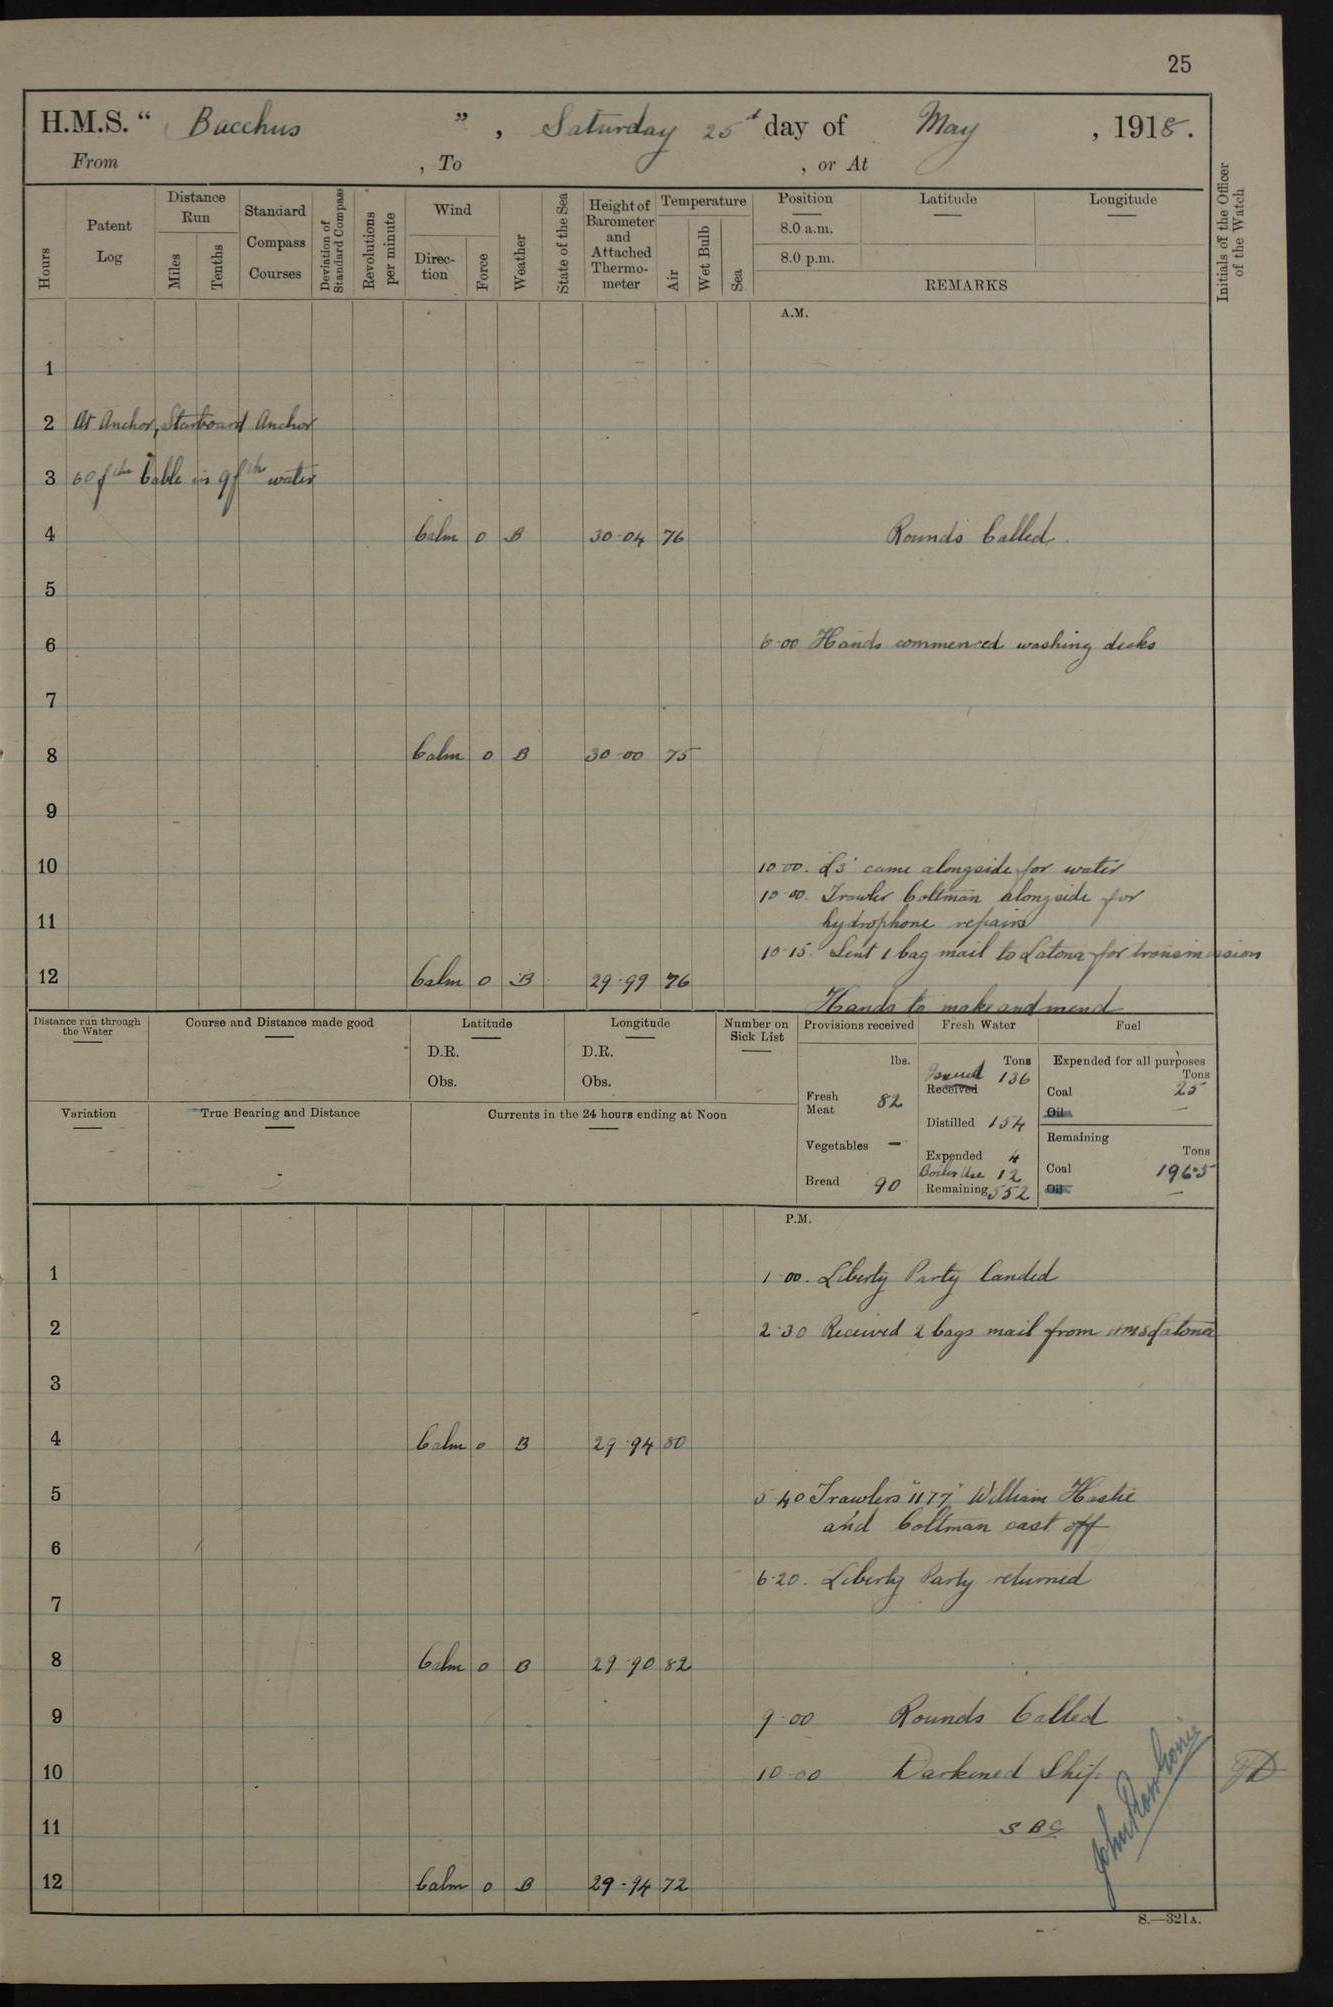 25
H.M.S. “ Bacchus ” , Saturday 25th day of May , 1918.
From , To , or At
Hours
Patent Log
Distance Run
Miles
Tenths
Standard Compass Courses
Deviation of Standard Compass
Revolutions per minute
Wind
Direc-tion
Force
Weather
State of the Sea
Height of Barometer and Attached Thermo-meter
Temperature
Air
Wet Bulb
Sea
Position Latitude Longitude
8.0 a.m.
8.0 p.m.
REMARKS
Initials of the Officer of the Watch
A.M.
1
2 At Anchor, Starboard Anchor
3 60 fths Cable in 9 fths water
4 Calm 0 B 30·04 76 Rounds Called.
5
6 6·00 Hands commenced washing decks
7
8 Calm 0 B 30·00 75
9
10 10·00. L3' came alongside for water
10·00. Trawler Coltman alongside for
11 hydrophone repairs
10·15. Sent 1 bag mail to Latona for transmission
12 Calm 0 B 29·99 76
Hands to make and mend
Distance run through the Water
Course and Distance made good
Latitude
D.R.
Obs.
Longitude
D.R.
Obs.
Number on Sick List
Provisions received
lbs.
Fresh Meat 82
Vegetables —
Bread 90
Fresh Water
Tons
Issued 136
Received
Distilled 154
Expended 4
Boiler Use 12
Remaining 552
Fuel
Expended for all purposes
Tons
Coal 25
Oil —
Remaining
Tons
Coal 1965
Oil —
Variation
True Bearing and Distance
Currents in the 24 hours ending at Noon
P.M.
1 1·00. Liberty Party landed
2 2·30 Received 2 bags mail from HMS Latona
3
4 Calm 0 B 29·94 80
5 5·40 Trawlers "1177" William Hastie
and Coltman cast off
6
6·20. Liberty Party returned
7
8 Calm 0 B 29·90 82
9 9·00 Rounds Called
10 10·00 Darkened Ship.
11 SBC
12 Calm 0 B 29·94 72
S.—321A.